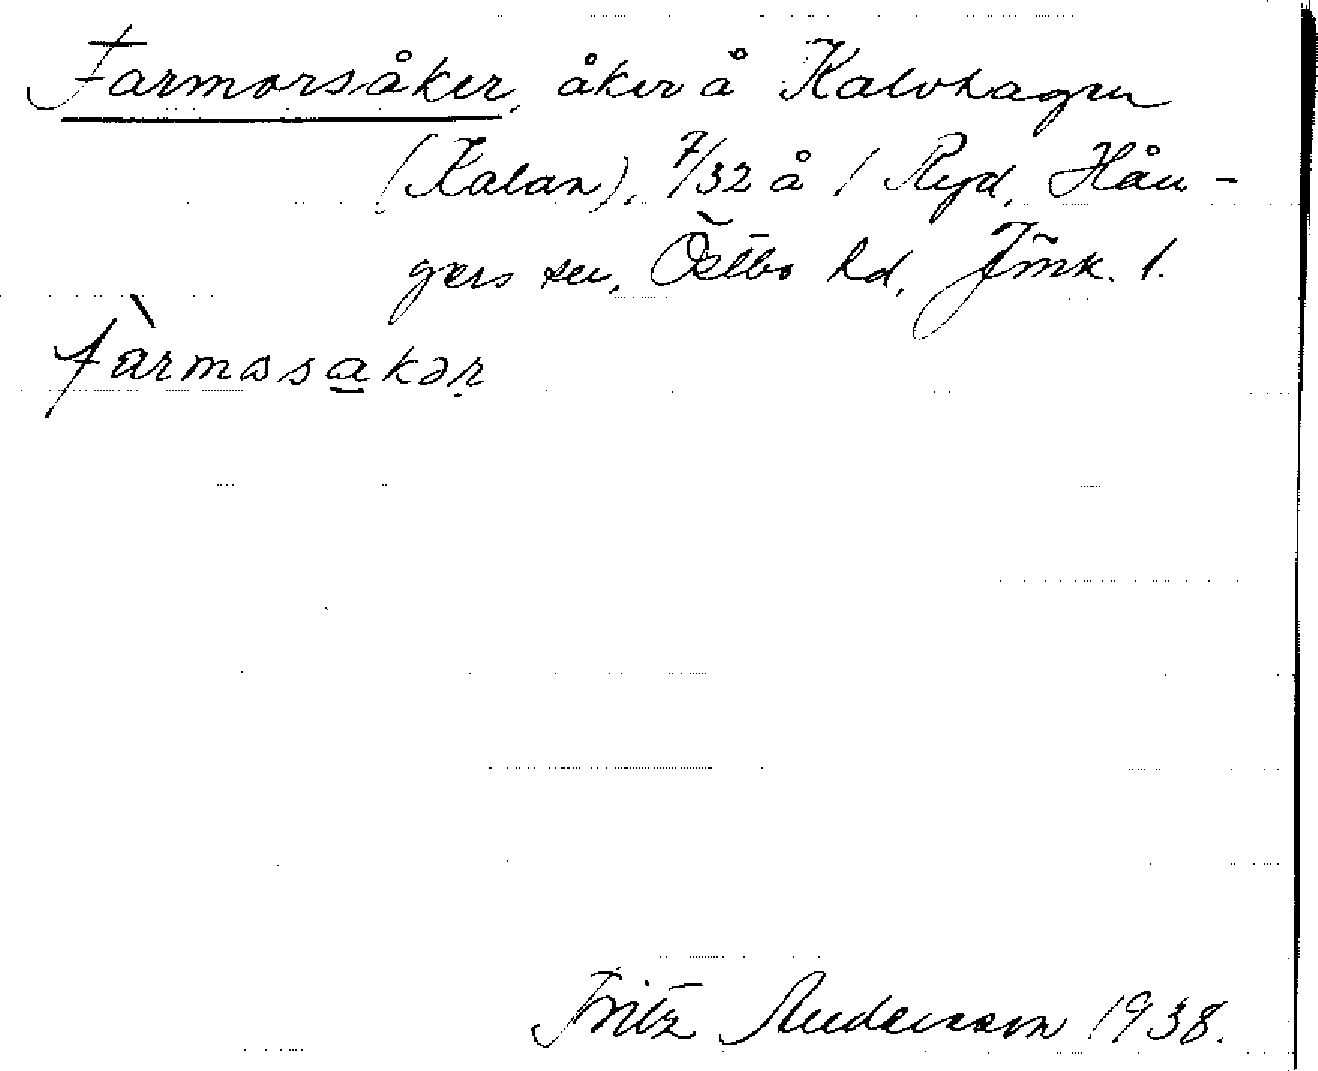 Farmorsåker, åker å Kalvhagen
(Kalan), 7/32 å 1 Ryd, Hån-
gers sn, Östbo hd, Jmk. l.
fàrmosakər
Fritz Andersson 1938.